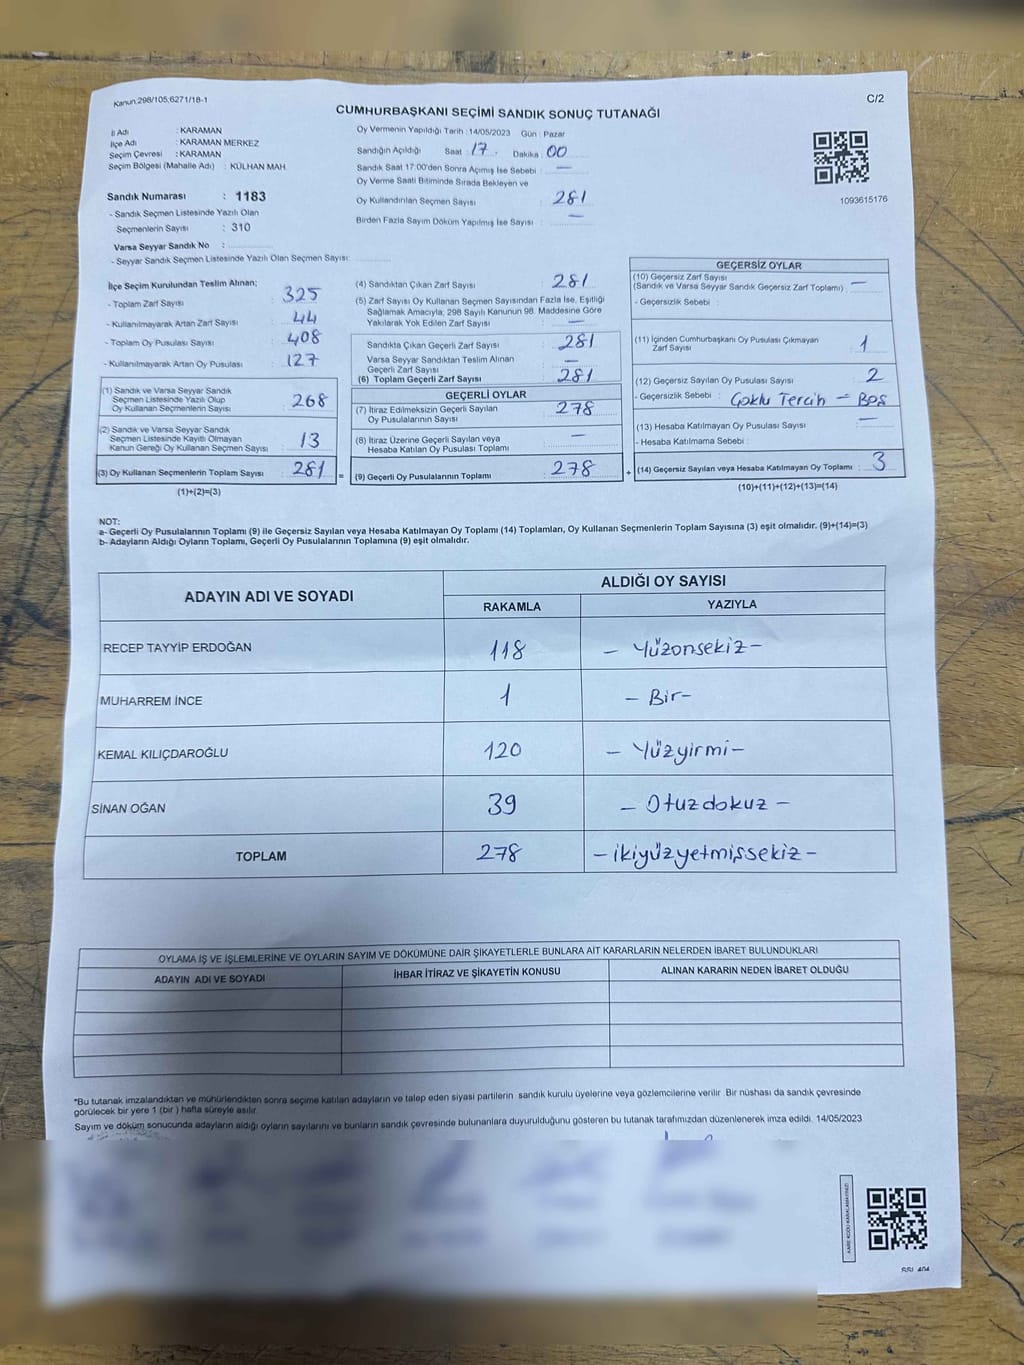 Kanun:298/105;6271/18-1
C/2
CUMHURBAŞKANI SEÇİMİ SANDIK SONUÇ TUTANAĞI
İl Adı : KARAMAN
İlçe Adı : KARAMAN MERKEZ
Seçim Çevresi : KARAMAN
Seçim Bölgesi (Mahalle Adı) : KÜLHAN MAH.
Sandık Numarası : 1183
- Sandık Seçmen Listesinde Yazılı Olan
Seçmenlerin Sayısı : 310
Varsa Seyyar Sandık No :
- Seyyar Sandık Seçmen Listesinde Yazılı Olan Seçmen Sayısı:
Oy Vermenin Yapıldığı Tarih :14/05/2023 Gün : Pazar
Sandığın Açıldığı Saat : 17 . Dakika : 00
Sandık Saat 17:00'den Sonra Açımış İse Sebebi : —
Oy Verme Saati Bitiminde Sırada Bekleyen ve
Oy Kullandırılan Seçmen Sayısı : 281
Birden Fazla Sayım Döküm Yapılmış İse Sayısı : —
1093615176
İlçe Seçim Kurulundan Teslim Alınan;
- Toplam Zarf Sayısı : 325
- Kullanılmayarak Artan Zarf Sayısı : 44
- Toplam Oy Pusulası Sayısı : 408
- Kullanılmayarak Artan Oy Pusulası : 127
(1) Sandık ve Varsa Seyyar Sandık
Seçmen Listesinde Yazılı Olup
Oy Kullanan Seçmenlerin Sayısı : 268
(2) Sandık ve Varsa Seyyar Sandık
Seçmen Listesinde Kayıtlı Olmayan
Kanun Gereği Oy Kullanan Seçmen Sayısı : 13
(3) Oy Kullanan Seçmenlerin Toplam Sayısı : 281 =
(1)+(2)=(3)
(4) Sandıktan Çıkan Zarf Sayısı : 281
(5) Zarf Sayısı Oy Kullanan Seçmen Sayısından Fazla İse, Eşitliği
Sağlamak Amacıyla; 298 Sayılı Kanunun 98. Maddesine Göre
Yakılarak Yok Edilen Zarf Sayısı : —
Sandıkta Çıkan Geçerli Zarf Sayısı : 281
Varsa Seyyar Sandıktan Teslim Alınan
Geçerli Zarf Sayısı : —
(6) Toplam Geçerli Zarf Sayısı : 281
GEÇERLİ OYLAR
(7) İtiraz Edilmeksizin Geçerli Sayılan
Oy Pusulasının Sayısı : 278
(8) İtiraz Üzerine Geçerli Sayılan veya
Hesaba Katılan Oy Pusulası Toplamı : —
(9) Geçerli Oy Pusulalarının Toplamı : 278 +
GEÇERSİZ OYLAR
(10) Geçersiz Zarf Sayısı
(Sandık ve Varsa Seyyar Sandık Geçersiz Zarf Toplamı) : —
- Geçersizlik Sebebi :
(11) İçinden Cumhurbaşkanı Oy Pusulası Çıkmayan
Zarf Sayısı : 1
(12) Geçersiz Sayılan Oy Pusulası Sayısı : 2
- Geçersizlik Sebebi : Çoklu Tercih — Boş
(13) Hesaba Katılmayan Oy Pusulası Sayısı : —
- Hesaba Katılmama Sebebi :
(14) Geçersiz Sayılan veya Hesaba Katılmayan Oy Toplamı : 3
(10)+(11)+(12)+(13)=(14)
NOT:
a- Geçerli Oy Pusulalarının Toplamı (9) ile Geçersiz Sayılan veya Hesaba Katılmayan Oy Toplamı (14) Toplamları, Oy Kullanan Seçmenlerin Toplam Sayısına (3) eşit olmalıdır. (9)+(14)=(3)
b- Adayların Aldığı Oyların Toplamı, Geçerli Oy Pusulalarının Toplamına (9) eşit olmalıdır.
ADAYIN ADI VE SOYADI ALDIĞI OY SAYISI
RAKAMLA YAZIYLA
RECEP TAYYİP ERDOĞAN 118 – Yüzonsekiz –
MUHARREM İNCE 1 – Bir –
KEMAL KILIÇDAROĞLU 120 – Yüzyirmi –
SİNAN OĞAN 39 – Otuzdokuz –
TOPLAM 278 – ikiyüzyetmişsekiz –
OYLAMA İŞ VE İŞLEMLERİNE VE OYLARIN SAYIM VE DÖKÜMÜNE DAİR ŞİKAYETLERLE BUNLARA AİT KARARLARIN NELERDEN İBARET BULUNDUKLARI
ADAYIN ADI VE SOYADI İHBAR İTİRAZ VE ŞİKAYETİN KONUSU ALINAN KARARIN NEDEN İBARET OLDUĞU
*Bu tutanak imzalandıktan ve mühürlendikten sonra seçime katılan adayların ve talep eden siyasi partilerin sandık kurulu üyelerine veya gözlemcilerine verilir. Bir nüshası da sandık çevresinde
görülecek bir yere 1 (bir ) hafta süreyle asılır.
Sayım ve döküm sonucunda adayların aldığı oyların sayılarını ve bunların sandık çevresinde bulunanlara duyurulduğunu gösteren bu tutanak tarafımızdan düzenlenerek imza edildi. 14/05/2023